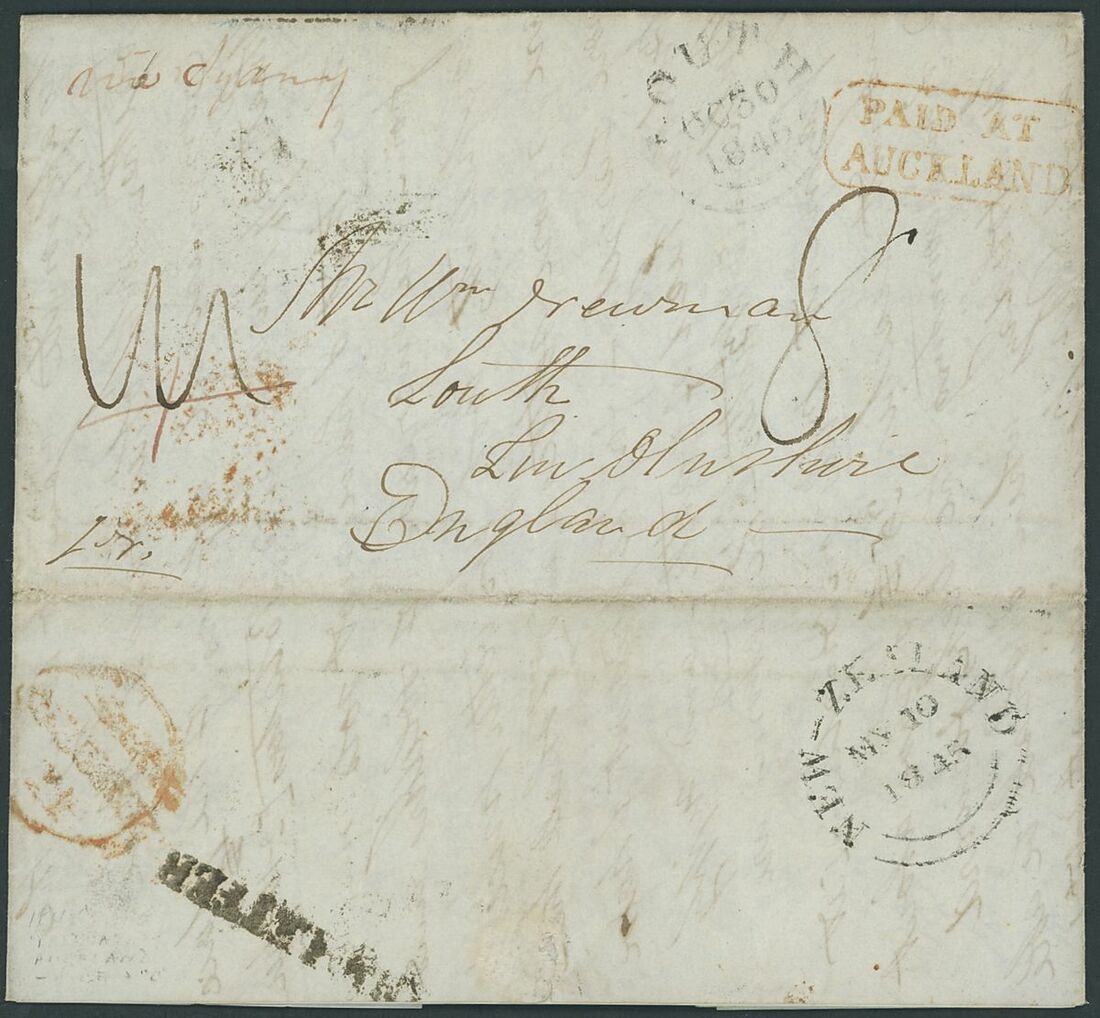 via Sydney
LOUTH
OC 30
1845
PAID AT
AUCKLAND
8
Mr Wm Newman
Louth
Lincolnshire
England
NEW-ZEALAND
MY 10
1845
LETTER